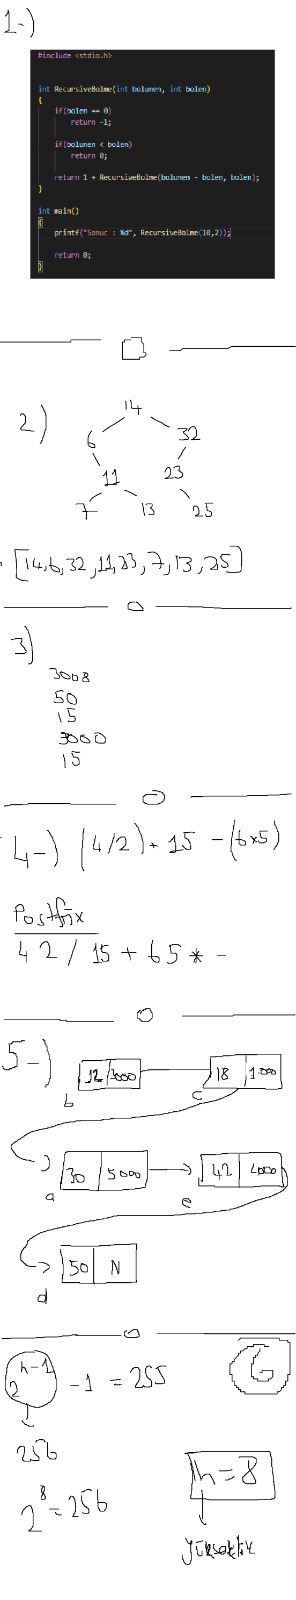 1-)
#include <stdio.h>
int RecursiveBolme(int bolunen, int bolen)
{
if(bolen == 0)
return -1;
if(bolunen < bolen)
return 0;
return 1 + RecursiveBolme(bolunen - bolen, bolen);
}
int main()
{
printf("Sonuc : %d", RecursiveBolme(10,2));
return 0;
}
2)
14
6 32
11 23
7 13 25
[14,6,32,11,23,7,13,25]
3)
3008
50
15
3000
15
4-) (4/2)+15-(6x5)
Postfix
42/15+65*-
5-)
12 3000 18 1000
b c
30 5000 42 4000
a e
50 N
d
6
2^h-1 -1 = 255
256
2^8=256
h=8
yükseklik